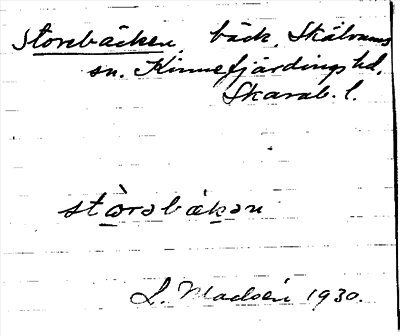 Storebäcken, bäck, Skälvums
sn. Kinnefjärdings hd.
Skarab. l.
stòrəbäkən
L. Madsén 1930.